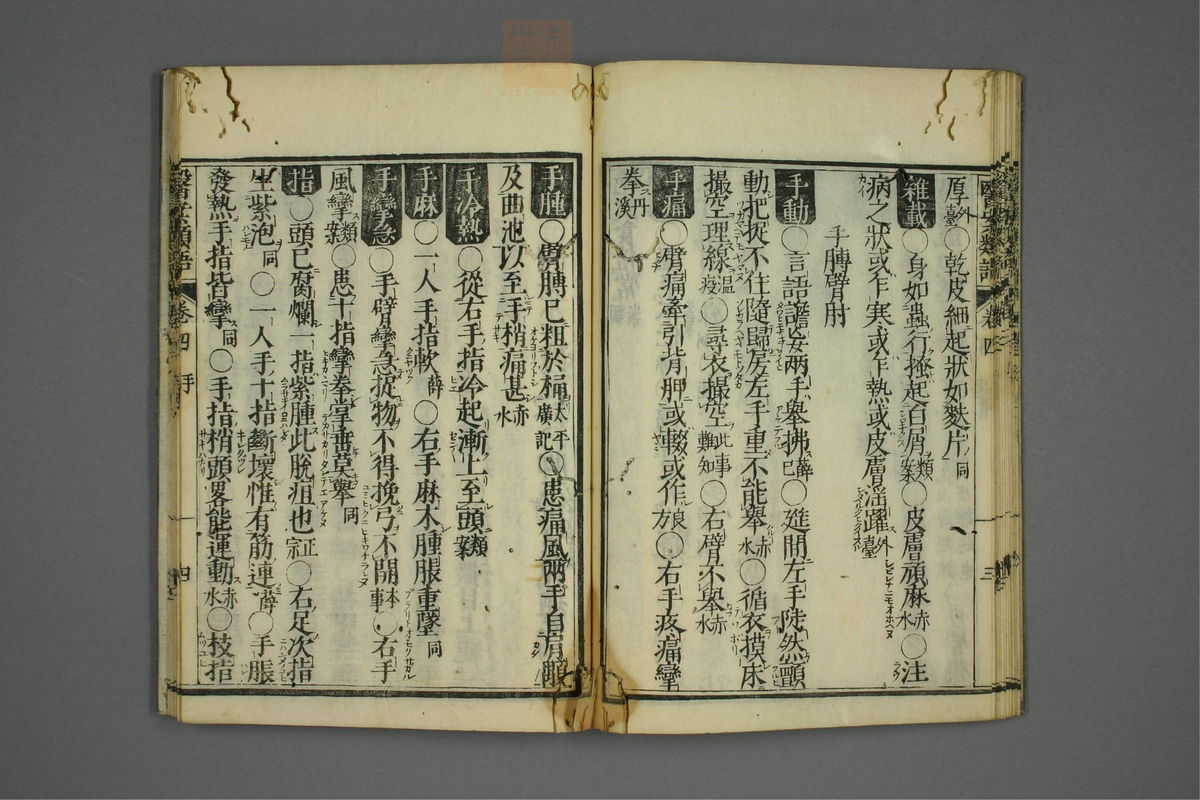 厚外臺〇乾皮細起狀如麩片同
雜載〇身如蟲行搔起白屑類案〇皮膚頑麻赤水〇注
病之狀或乍寒或乍熱或皮膚淫躍外臺
手膊臂肘
手動〇言語譫妄兩手舉拂薛己〇筵間左手陡然顫
動把捉不住隨歸房左手重不能舉赤水〇循衣摸床
撮空理線溫疫〇尋衣撮空此事難知〇右臂不舉赤水
手痛〇臂痛牽引背胛或輟或作良方〇右手疼痛攣
拳丹溪
醫案類語 卷四 三
手腫〇臂膊已粗於桶太平廣記〇患痛風兩手自肩顒
及曲池以至手梢痛甚赤水
手冷熱〇從右手指冷起漸上至頭類案
手麻〇一人手指軟薛〇右手麻木腫脹重墜同
手攣急〇手臂攣急捉物不得挽弓不開本事〇右手
風攣類案〇患十指攣拳掌垂莫舉同
指〇頭已腐爛一指紫腫此脫疽也正宗〇右足次指
生紫泡同〇一人手十指斷壞惟有筋連薛〇手脹
發熱手指皆攣同〇手指梢頭畧能運動赤水〇枝指
醫案類語 卷四 手 四